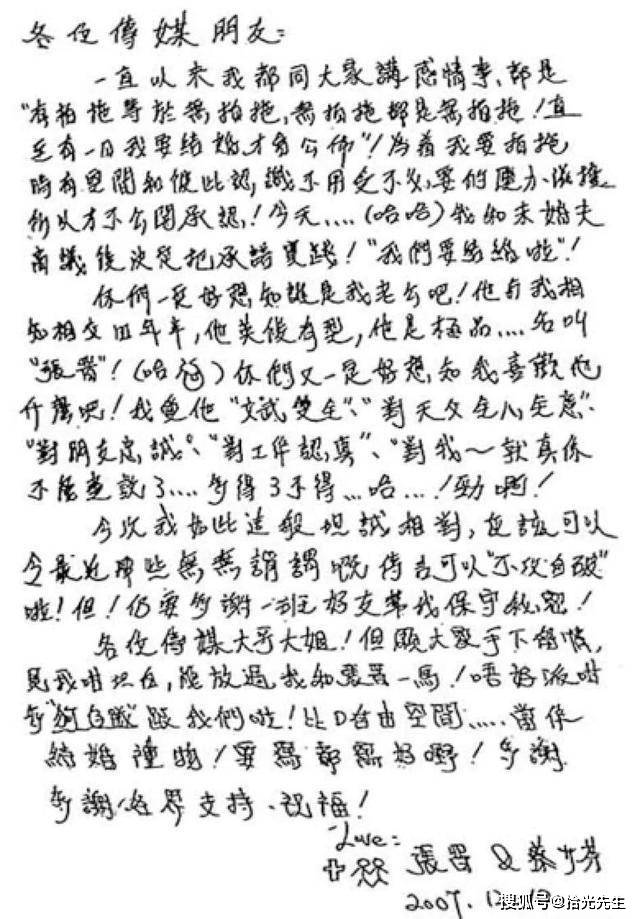 各位傳媒朋友：
一直以來我都同大家講感情事，都是
"有拍拖等於無拍拖，無拍拖都是無拍拖！直
至有一日我要結婚才會公佈"！為着我要拍拖
時有空間和彼此認識不用受不必要的壓力滋擾
所以才不公開承認！今天....(哈哈)我和未婚夫
商議後決定把承諾實踐！"我們要結婚啦"！
你們一定好想知誰是我老公吧！他與我相
知相交四年半，他英俊有型，他是極品....名叫
"張晉"！(哈哈)你們又一定好想知我喜歡他
什麼吧！我愛他"文武雙全"、"對天父全心全意"、
"對朋友忠誠"、"對工作認真"、"對我～就真係
不能盡說了....多得了不得...哈...！勁啊！
今次我如此這般坦誠相對，應該可以
令最近那些無無謂謂嘅傳言可以"不攻自破"
啦！但！仍要多謝一班好友幫我保守秘密！
各位傳媒大哥大姐！但願大家手下留情，
見我咁坦白，能放過我和張晉一馬！唔好派咁
多"狗仔隊"跟我們啦！比D自由空間.....當係
結婚禮物！要寫都寫好嘢！多謝
多謝各界支持、祝福！
Love:
張晉 & 蔡少芬
2007.12.
搜狐号@拾光先生